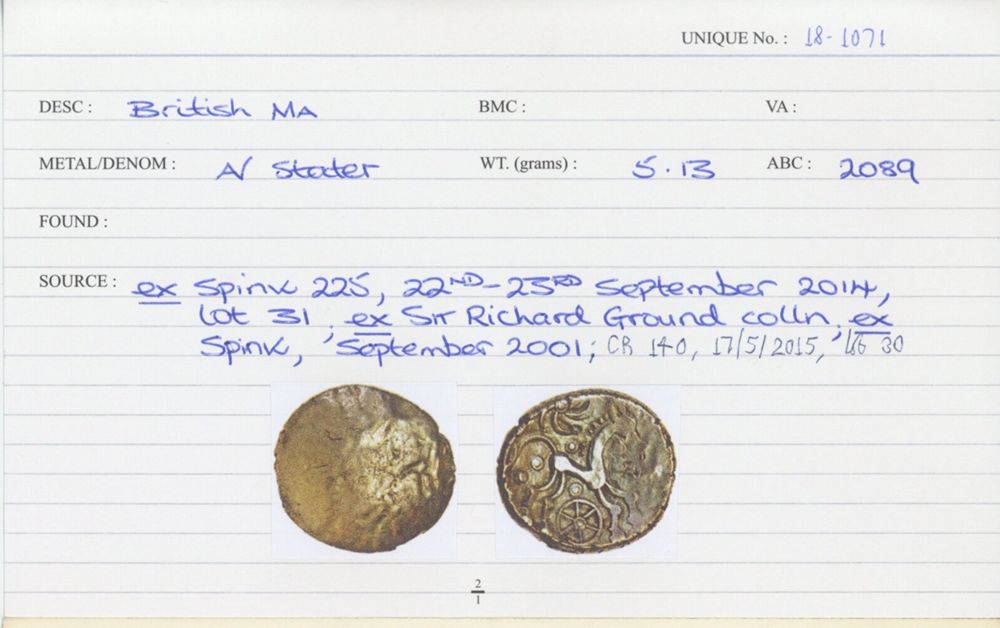 UNIQUE No. : 18-1071
DESC : British MA BMC : VA :
METAL/DENOM : A/ Stater WT. (grams) : 5.13 ABC : 2089
FOUND :
SOURCE : ex Spink 225, 22ND-23RD September 2014,
lot 31; ex Sir Richard Ground colln; ex
Spink, September 2001; CR 140, 17/5/2015, lot 30
2
1